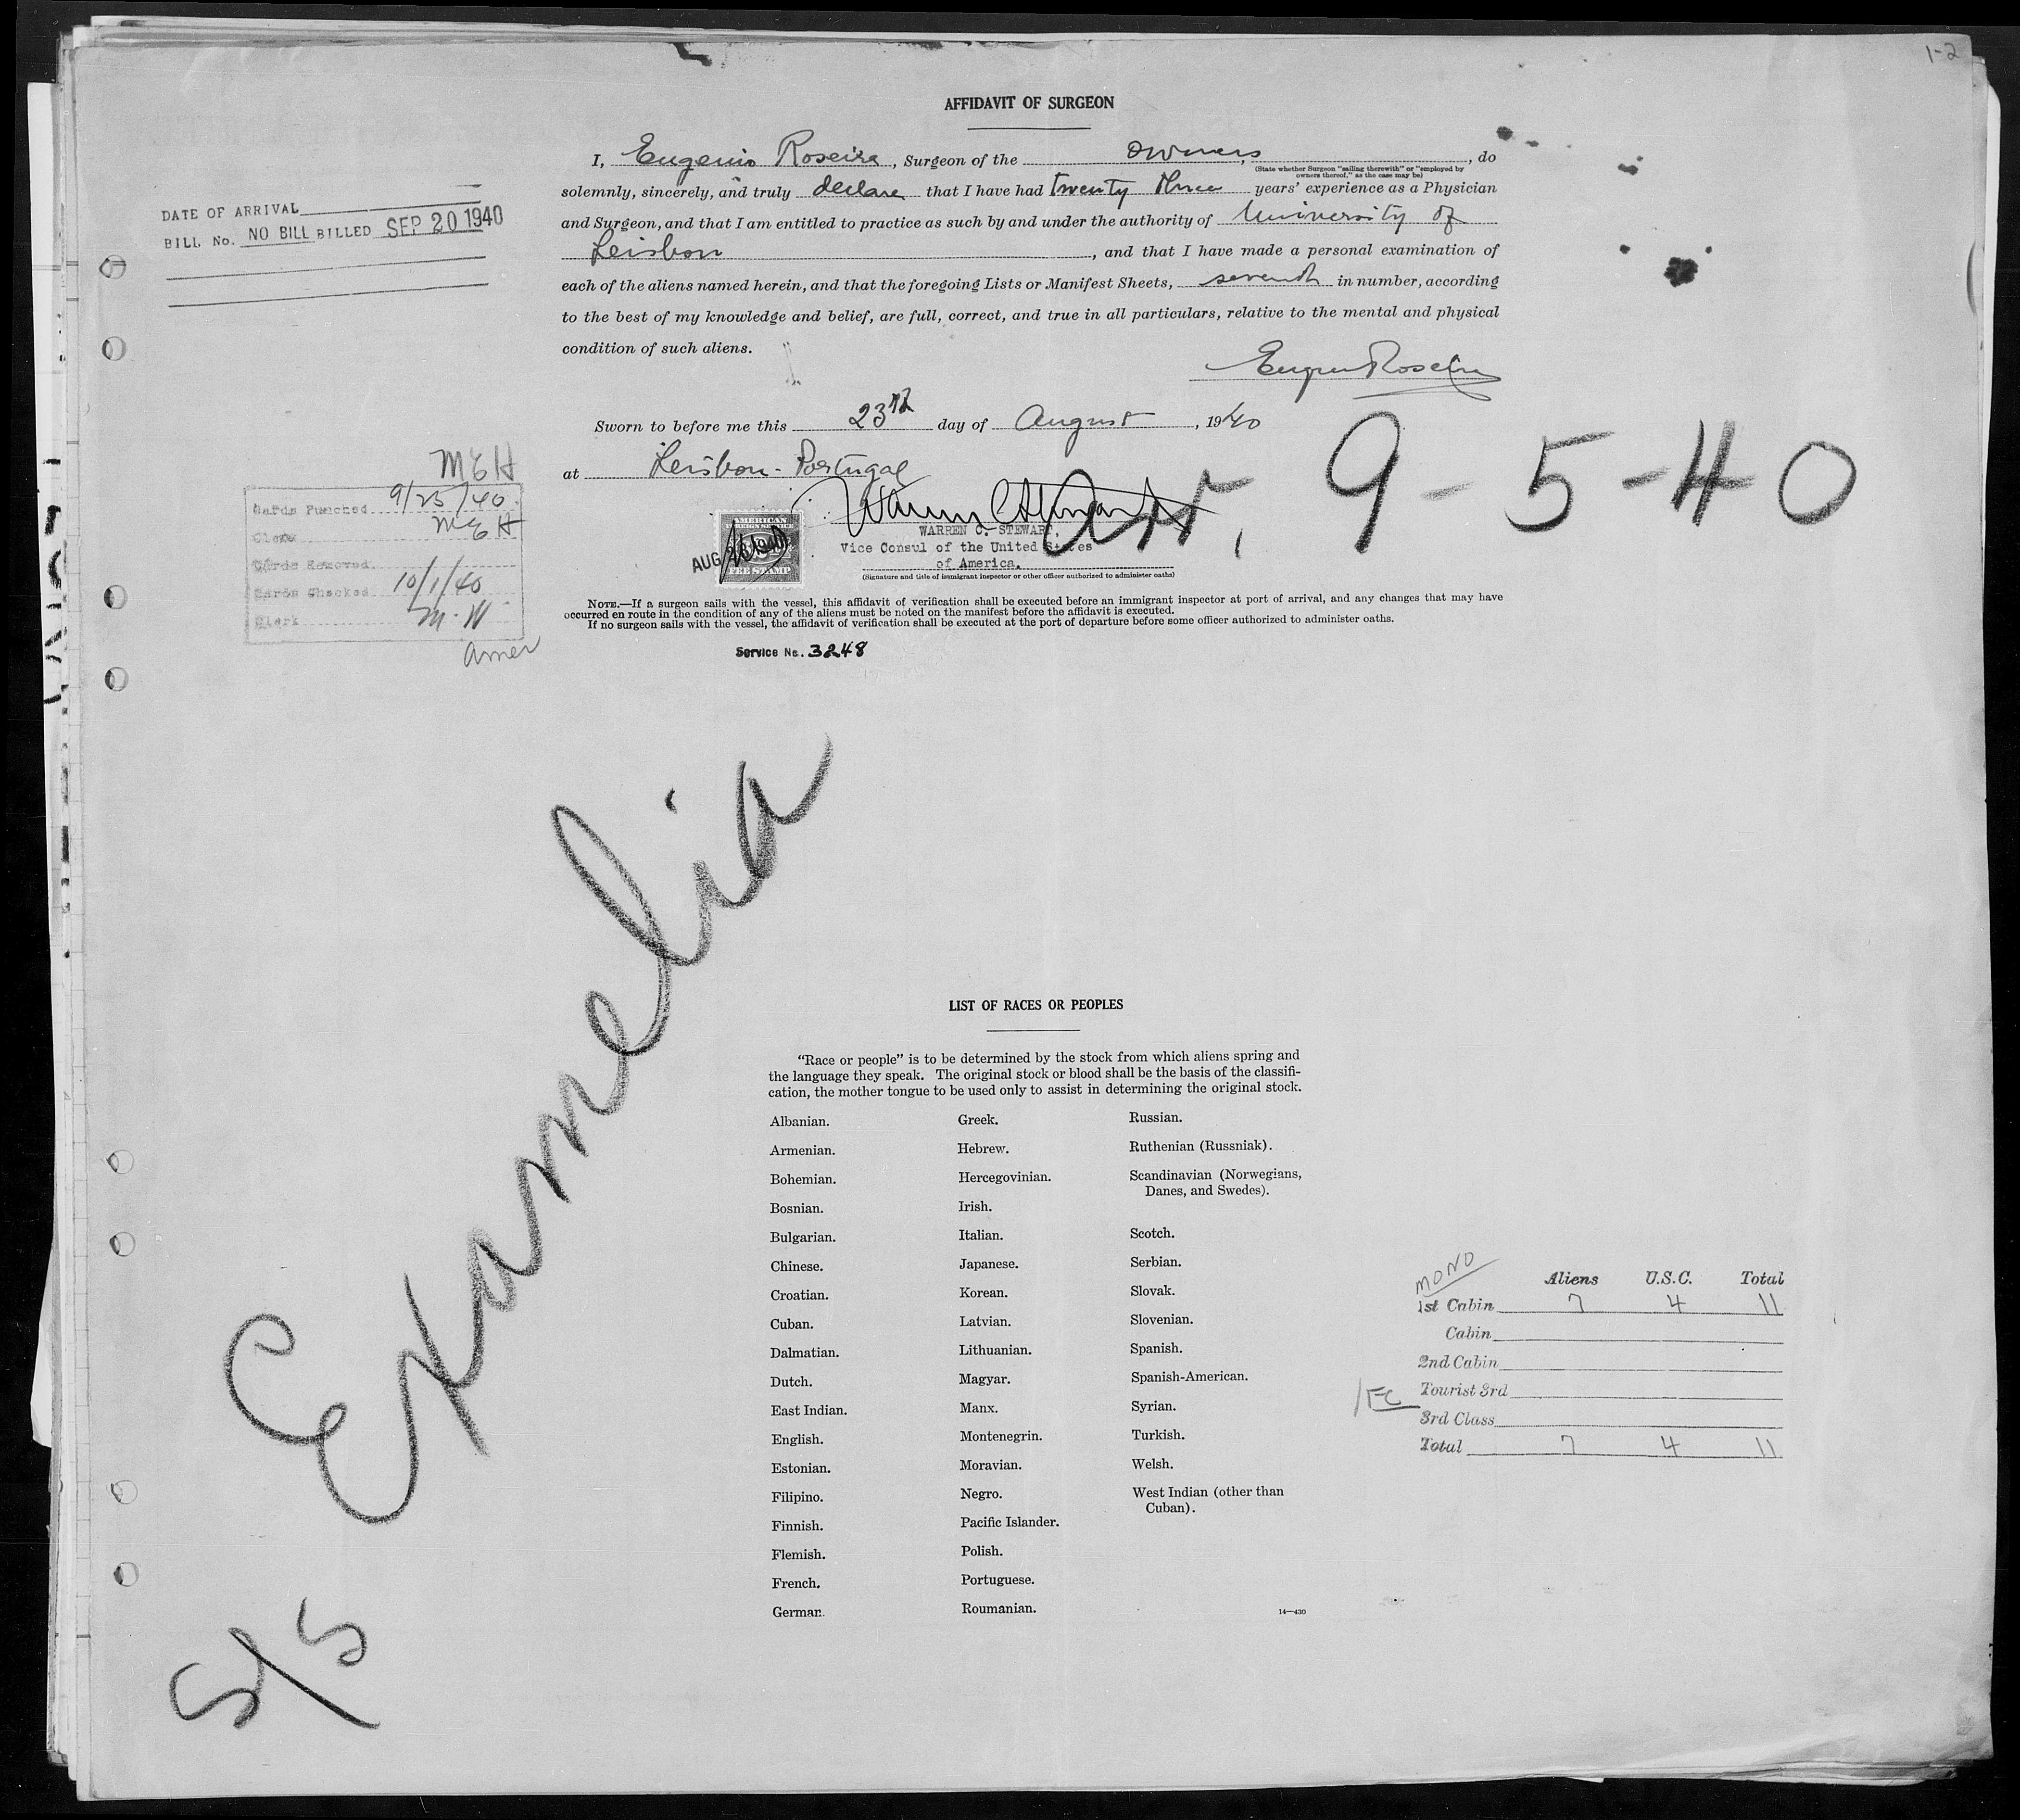 1-2
AFFIDAVIT OF SURGEON
I, Eugenio Roseira, Surgeon of the owners, do
(State whether Surgeon "sailing therewith" or "employed by
owners thereof," as the case may be)
solemnly, sincerely, and truly declare that I have had twenty three years' experience as a Physician
and Surgeon, and that I am entitled to practice as such by and under the authority of University of
Leisbon, and that I have made a personal examination of
each of the aliens named herein, and that the foregoing Lists or Manifest Sheets, in number, according
to the best of my knowledge and belief, are full, correct, and true in all particulars, relative to the mental and physical
condition of such aliens.
Sworn to before me this 23rd day of August, 1940
at Leisbon - Portugal
Arr, 9-5-40
AMERICAN
FOREIGN SERVICE
FEE STAMP
AUG 23 1940
WARREN C. STEWART,
Vice Consul of the United States
of America.
(Signature and title of immigrant inspector or other officer authorized to administer oaths)
NOTE.—If a surgeon sails with the vessel, this affidavit of verification shall be executed before an immigrant inspector at port of arrival, and any changes that may have
occurred en route in the condition of any of the aliens must be noted on the manifest before the affidavit is executed.
If no surgeon sails with the vessel, the affidavit of verification shall be executed at the port of departure before some officer authorized to administer oaths.
Service No. 3248
DATE OF ARRIVAL
BILL No. NO BILL BILLED SEP 20 1940
MEH
Cards Punched 9/25/40
Clerk MEH
Cards Removed
Cards Checked 10/1/40
Clerk M.W
amer
S/S Examelia
LIST OF RACES OR PEOPLES
"Race or people" is to be determined by the stock from which aliens spring and
the language they speak. The original stock or blood shall be the basis of the classifi-
cation, the mother tongue to be used only to assist in determining the original stock.
Albanian.
Armenian.
Bohemian.
Bosnian.
Bulgarian.
Chinese.
Croatian.
Cuban.
Dalmatian.
Dutch.
East Indian.
English.
Estonian.
Filipino.
Finnish.
Flemish.
French.
German.
Greek.
Hebrew.
Hercegovinian.
Irish.
Italian.
Japanese.
Korean.
Latvian.
Lithuanian.
Magyar.
Manx.
Montenegrin.
Moravian.
Negro.
Pacific Islander.
Polish.
Portuguese.
Roumanian.
Russian.
Ruthenian (Russniak).
Scandinavian (Norwegians,
Danes, and Swedes).
Scotch.
Serbian.
Slovak.
Slovenian.
Spanish.
Spanish-American.
Syrian.
Turkish.
Welsh.
West Indian (other than
Cuban).
14—430
MONO
Aliens U.S.C. Total
1st Cabin 7 4 11
Cabin
2nd Cabin
Tourist 3rd
3rd Class
Total 7 4 11